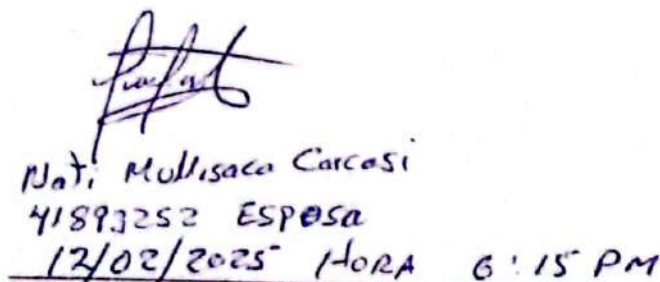 Nati Mullisaca Carcasi
41893252 ESPOSA
12/02/2025 HORA 6:15 PM